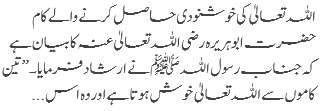 اللہ تعالیٰ کی خوشنودی حاصل کرنے والے کام
حضرت ابوہریرہ رضی اللہ تعالیٰ عنہ کا بیان ہے
کہ جناب رسول اللہ ﷺ نے ارشاد فرمایا۔ ”تین
کاموں سے اللہ تعالیٰ خوش ہوتا ہے اور وہ اس ...